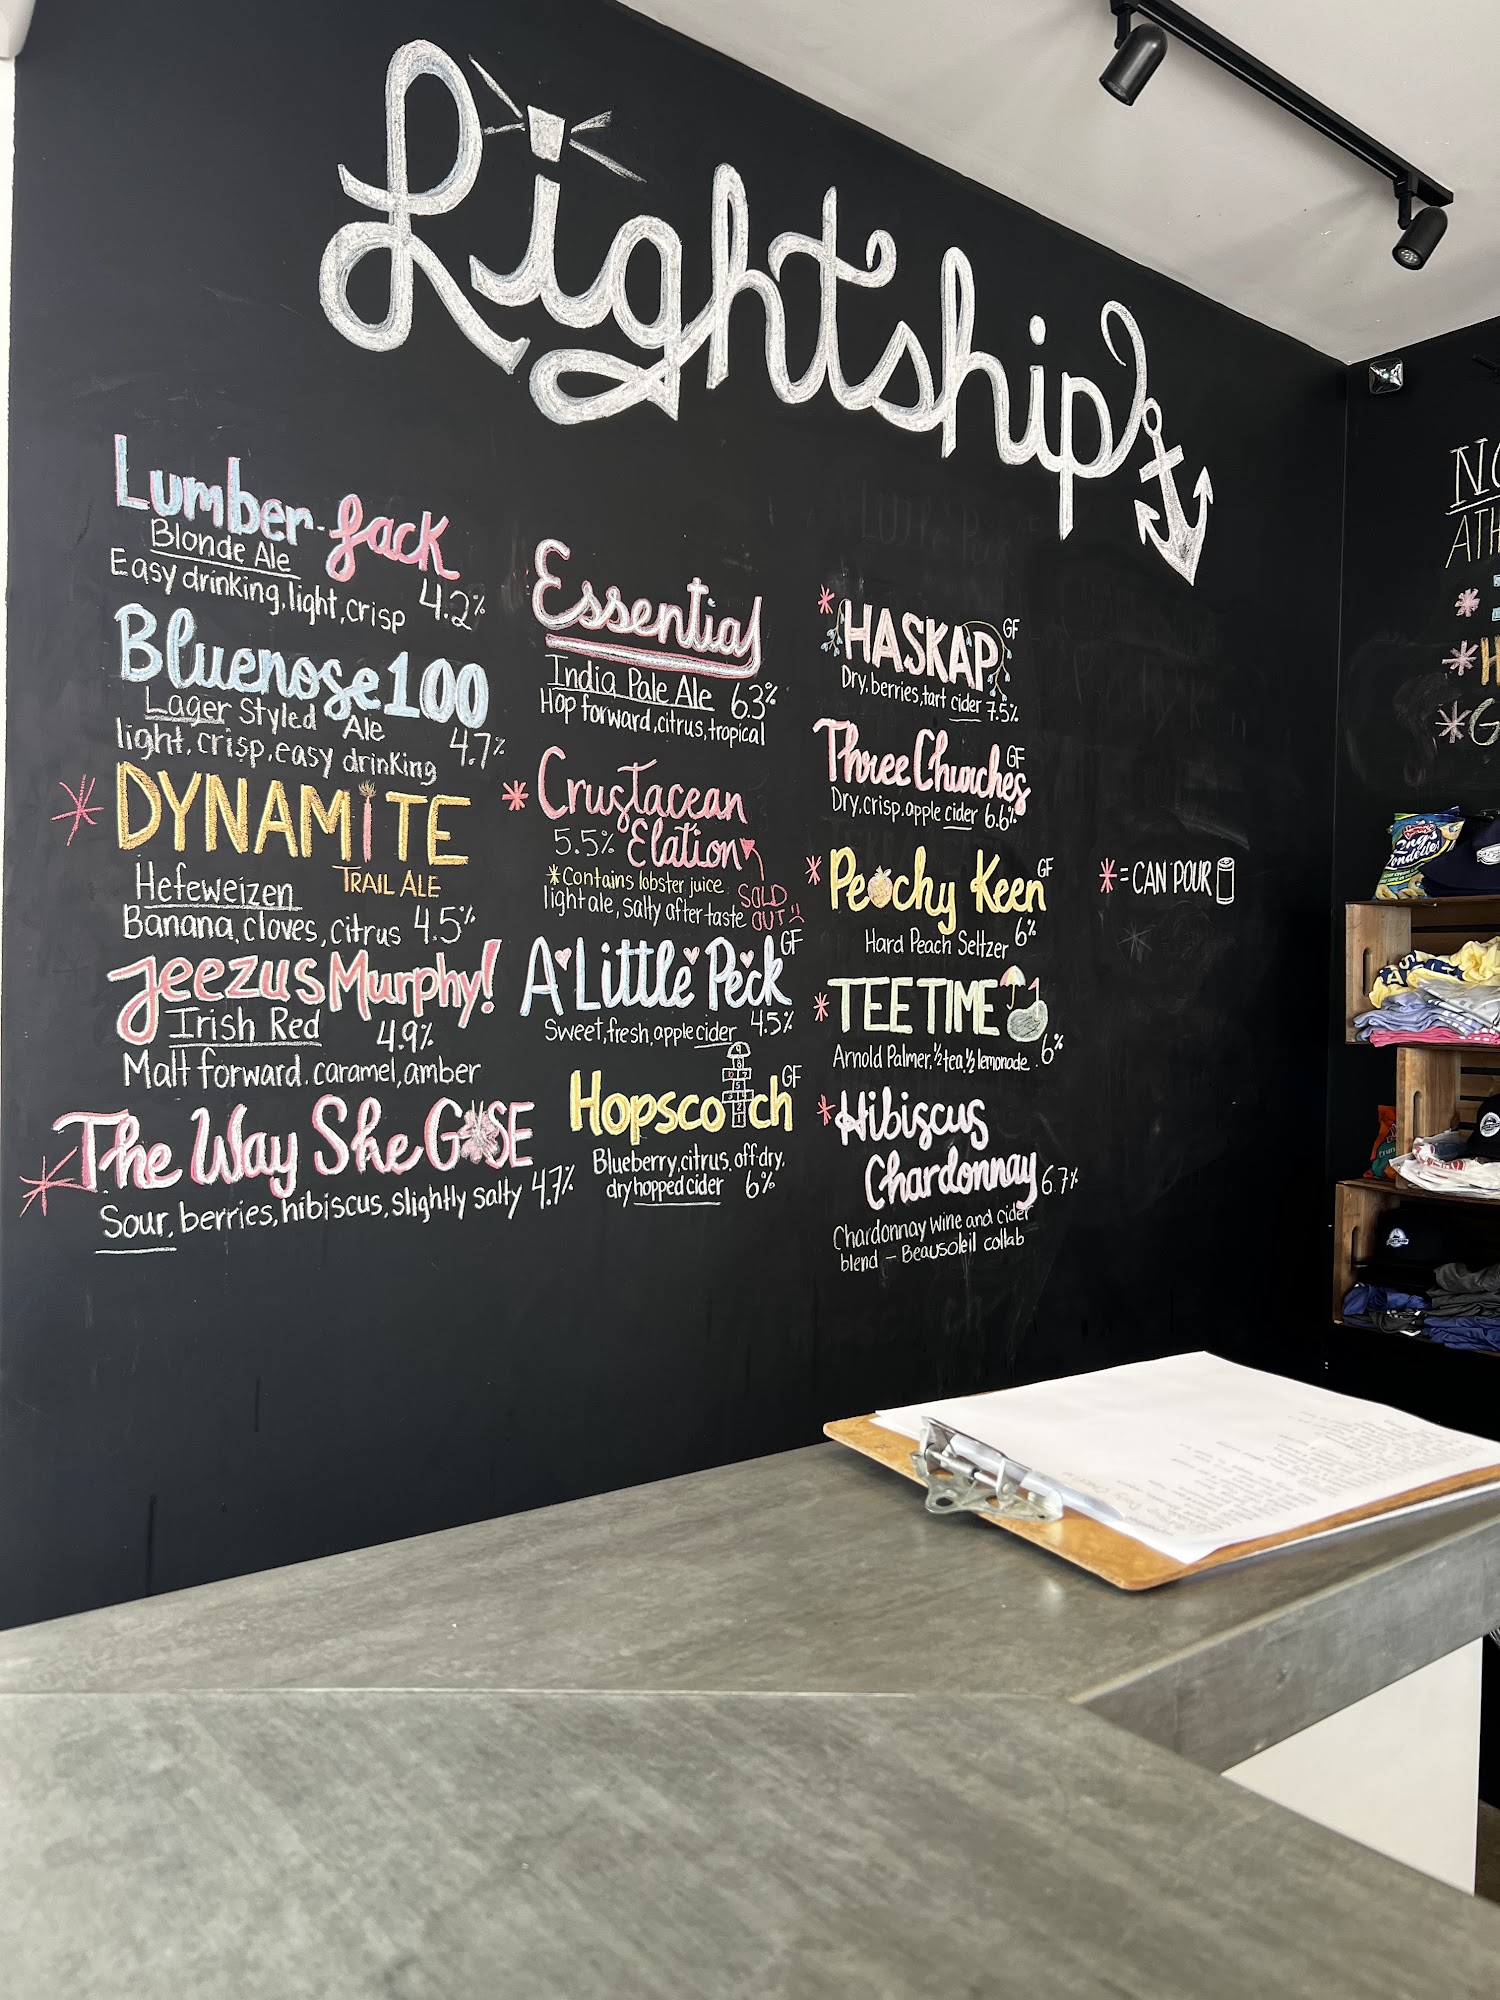 Lightship
Lumber-Jack
Blonde Ale
Easy drinking, light, crisp 4.2%
Bluenose 100
Lager Styled Ale
light, crisp, easy drinking 4.7%
* DYNAMITE
TRAIL ALE
Hefeweizen
Banana, cloves, citrus 4.5%
Jeezus Murphy!
Irish Red 4.9%
Malt forward, caramel, amber
* The Way She GOSE
Sour, berries, hibiscus, slightly salty 4.7%
Essential
India Pale Ale 6.3%
Hop forward, citrus, tropical
* Crustacean
5.5% Elation
*Contains lobster juice
light ale, salty after taste
SOLD
OUT
A Little Peck GF
Sweet, fresh, apple cider 4.5%
Hopscotch GF
Blueberry, citrus, off-dry,
dry hopped cider 6%
* HASKAP GF
Dry, berries, tart cider 7.5%
Three Churches GF
Dry, crisp, apple cider 6.6%
* Peachy Keen GF
Hard Peach Seltzer 6%
* TEE TIME
Arnold Palmer, ½ tea, ½ lemonade. 6%
* Hibiscus
Chardonnay 6.7%
Chardonnay wine and cider
blend - Beausoleil collab
* = CAN POUR